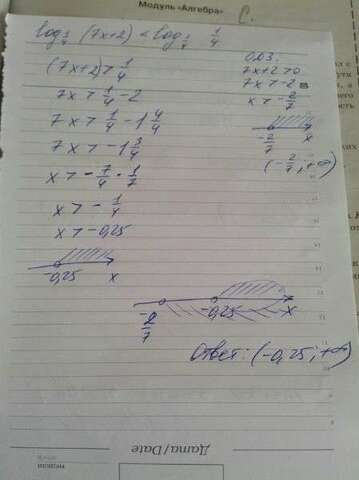 Модуль «Алгебра»
С.
log₁/₇ (7x+2) < log₁/₇ 1/4
(7x+2) > 1/4
7x > 1/4 - 2
7x > 1/4 - 1 4/4
7x > -1 3/4
x > - 7/4 · 1/7
x > - 1/4
x > -0,25
-0,25 x
О.О.З.:
7x+2 > 0
7x > -2
x > - 2/7
- 2/7 x
(- 2/7 ; +∞)
- 2/7 -0,25 x
Ответ: (-0,25 ; +∞)
Дата/Date